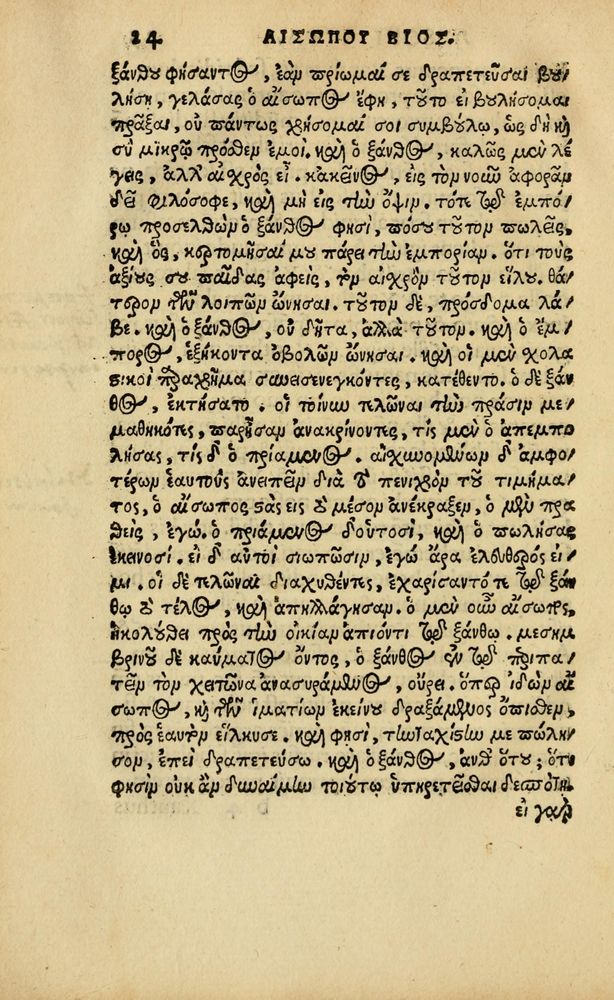 24 ΑΙΣΩΠΟΥ ΒΙΟΣ.
ξάνθου φήσαντος, ἐὰν πρίωμαί σε δραπετεῦσαι βου/
λήσῃ, γελάσας ὁ αἴσωπος ἔφη, τοῦτο εἰ βουλήσομαι
πρᾶξαι, οὐ πάντως χρήσομαί σοι συμβούλῳ, ὡς δὴ καὶ
σὺ μικρῷ πρόσθεν ἐμοί. καὶ ὁ ξάνθος, καλῶς μὲν λέ
γεις, ἀλλ' αἰσχρὸς εἶ. κἀκεῖνος, εἰς τὸν νοῦν ἀφορᾶν
δεῖ φιλόσοφε, καὶ μὴ εἰς τὴν ὄψιν. τότε τῷ ἐμπό/
ρῳ προσελθὼν ὁ ξάνθος φησὶ, πόσου τοῦτον πωλεῖς,
καὶ ὃς, κερτομῆσαί μου πάρει τὴν ἐμπορίαν. ὅτι τοὺς
ἀξίους σου παῖδας ἀφεὶς, τὸν αἰσχρὸν τοῦτον εἵλου. θά/
τερον τῶν λοιπῶν ὤνησαι. τοῦτον δὲ, πρόσδομα λά/
βε. καὶ ὁ ξάνθος, οὐ δῆτα, ἀλλὰ τοῦτον. καὶ ὁ ἔμ/
πορος, ἑξήκοντα ὀβολῶν ὤνησαι. καὶ οἱ μὲν σχολα
στικοὶ παραχρῆμα συνεισενεγκόντες, κατέθεντο. ὁ δὲ ξάν
θος, ἐκτήσατο. οἱ τοίνυν τελῶναι τὴν πρᾶσιν με/
μαθηκότες, παρῆσαν ἀνακρίνοντες, τίς μὲν ὁ ἀπεμπο
λήσας, τίς δ' ὁ πριάμενος. αἰσχυνομένων δ' ἀμφο/
τέρων ἑαυτοὺς ἀνειπεῖν διὰ τὸ πενιχρὸν τοῦ τιμήμα/
τος, ὁ αἴσωπος στὰς εἰς τὸ μέσον ἀνέκραξεν, ὁ μὲν πρα
θεὶς, ἐγώ. ὁ πριάμενος δ' οὑτοσὶ, καὶ ὁ πωλήσας
ἐκεινοσί. εἰ δ' αὐτοὶ σιωπῶσιν, ἐγὼ ἄρα ἐλεύθερός εἰ/
μι. οἱ δὲ τελῶναι διαχυθέντες, ἐχαρίσαντό τε τῷ ξάν
θῳ τὸ τέλος, καὶ ἀπηλλάγησαν. ὁ μὲν οὖν αἴσωπος,
ἠκολούθει πρὸς τὴν οἰκίαν ἀπιόντι τῷ ξάνθῳ. μεσημ
βρινοῦ δὲ καύματος ὄντος, ὁ ξάνθος ἐν τῷ περιπα/
τεῖν τὸν χιτῶνα ἀνασυράμενος, οὔρει. ὅπερ ἰδὼν αἴ
σωπος, καὶ τῶν ἱματίων ἐκείνου δραξάμενος ὄπισθεν,
πρὸς ἑαυτὸν εἵλκυσε. καὶ φησὶ, τὴν ταχίστην με πώλη/
σον, ἐπεὶ δραπετεύσω. καὶ ὁ ξάνθος, ἀνθ' ὅτου; ὅτι
φησὶν οὐκ ἂν δυναίμην τοιούτῳ ὑπηρετεῖσθαι δεσπότῃ.
εἰ γὰρ